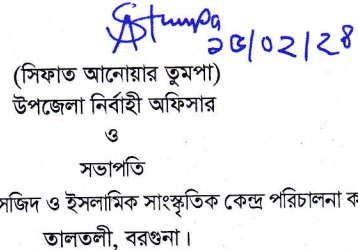 ২৫/০২/২৪
(সিফাত আনোয়ার তুমপা)
উপজেলা নির্বাহী অফিসার
ও
সভাপতি
সজিদ ও ইসলামিক সাংস্কৃতিক কেন্দ্র পরিচালনা ক
তালতলী, বরগুনা।